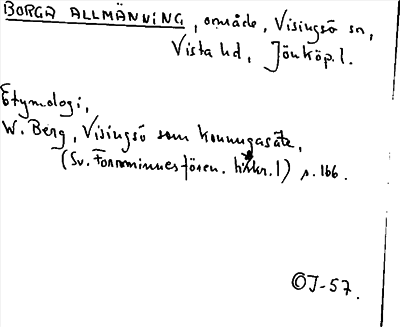 BORGA ALLMÄNNING, område, Visingsö sn,
Vista hd, Jönköp. l.
Etymologi,
W. Berg, Visingsö som konungasäte,
(Sv. Fornminnesfören. tidskr. 1) s. 166.
OJ-57.